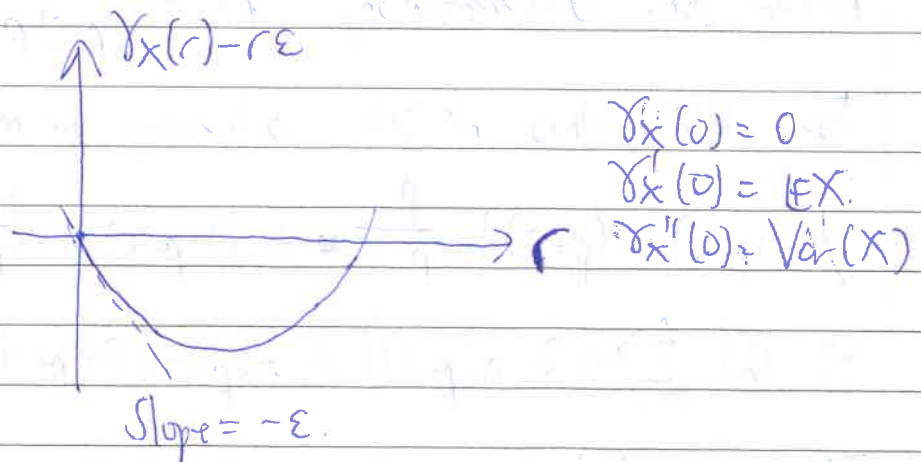 γx(r)-rε
γx(0) = 0
γx'(0) = EX.
γx''(0) = Var(X)
r
Slope = -ε.